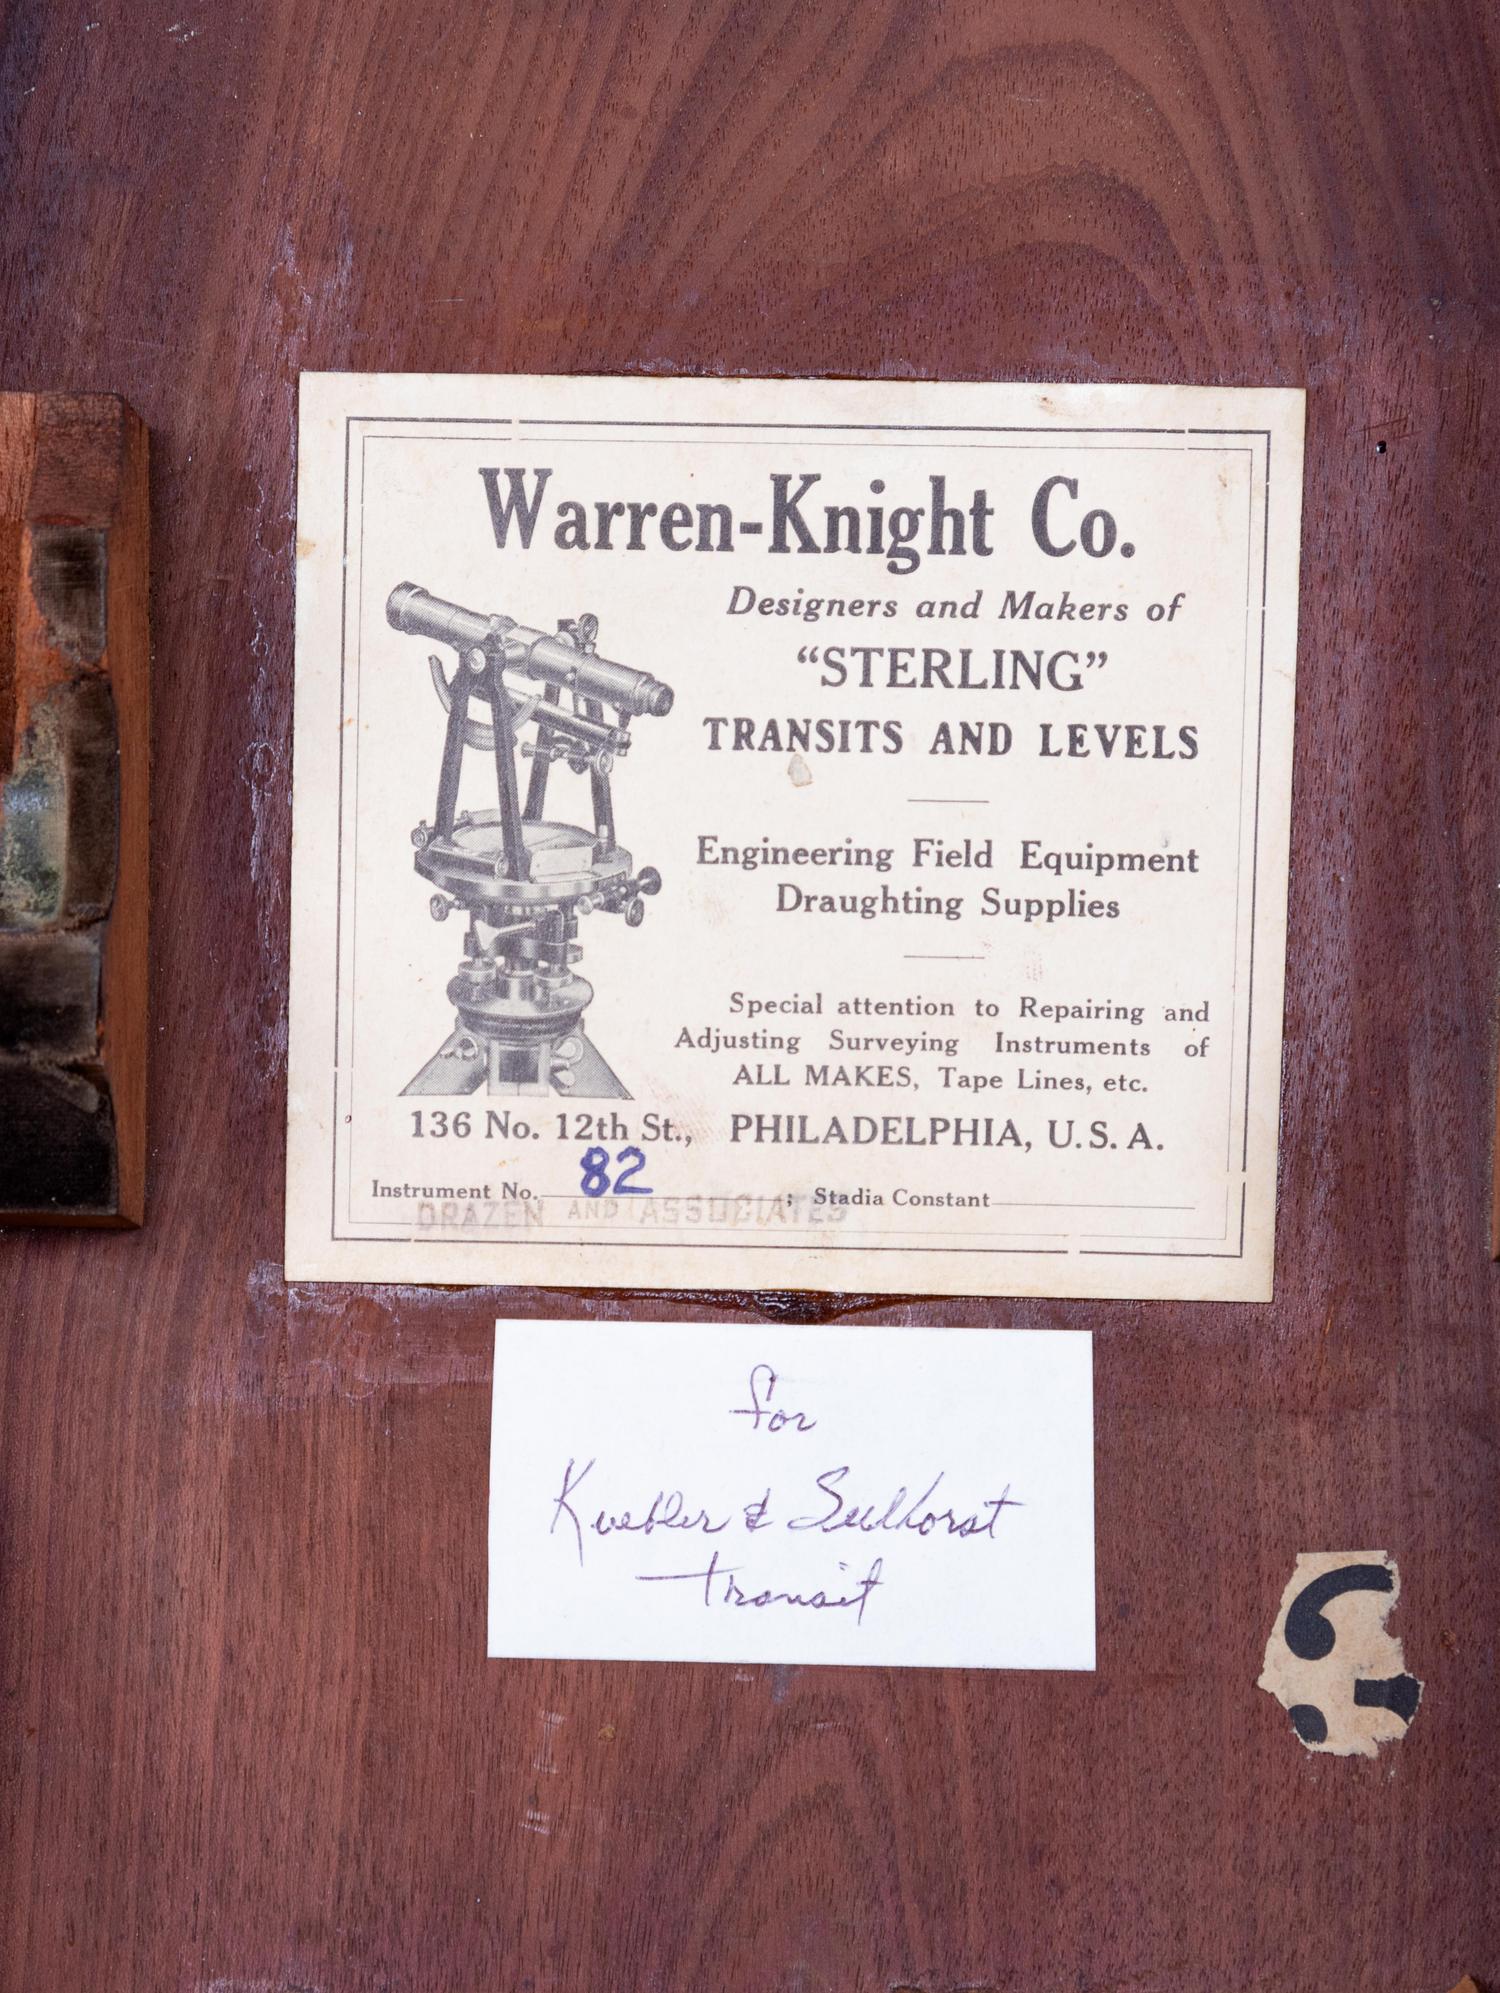 Warren-Knight Co.
Designers and Makers of
“STERLING”
TRANSITS AND LEVELS
Engineering Field Equipment
Draughting Supplies
Special attention to Repairing and
Adjusting Surveying Instruments of
ALL MAKES, Tape Lines, etc.
136 No. 12th St., PHILADELPHIA, U.S.A.
Instrument No. 82 ; Stadia Constant
DRAZEN AND ASSOCIATES
for
Kuebler & Seelhorst
Transit